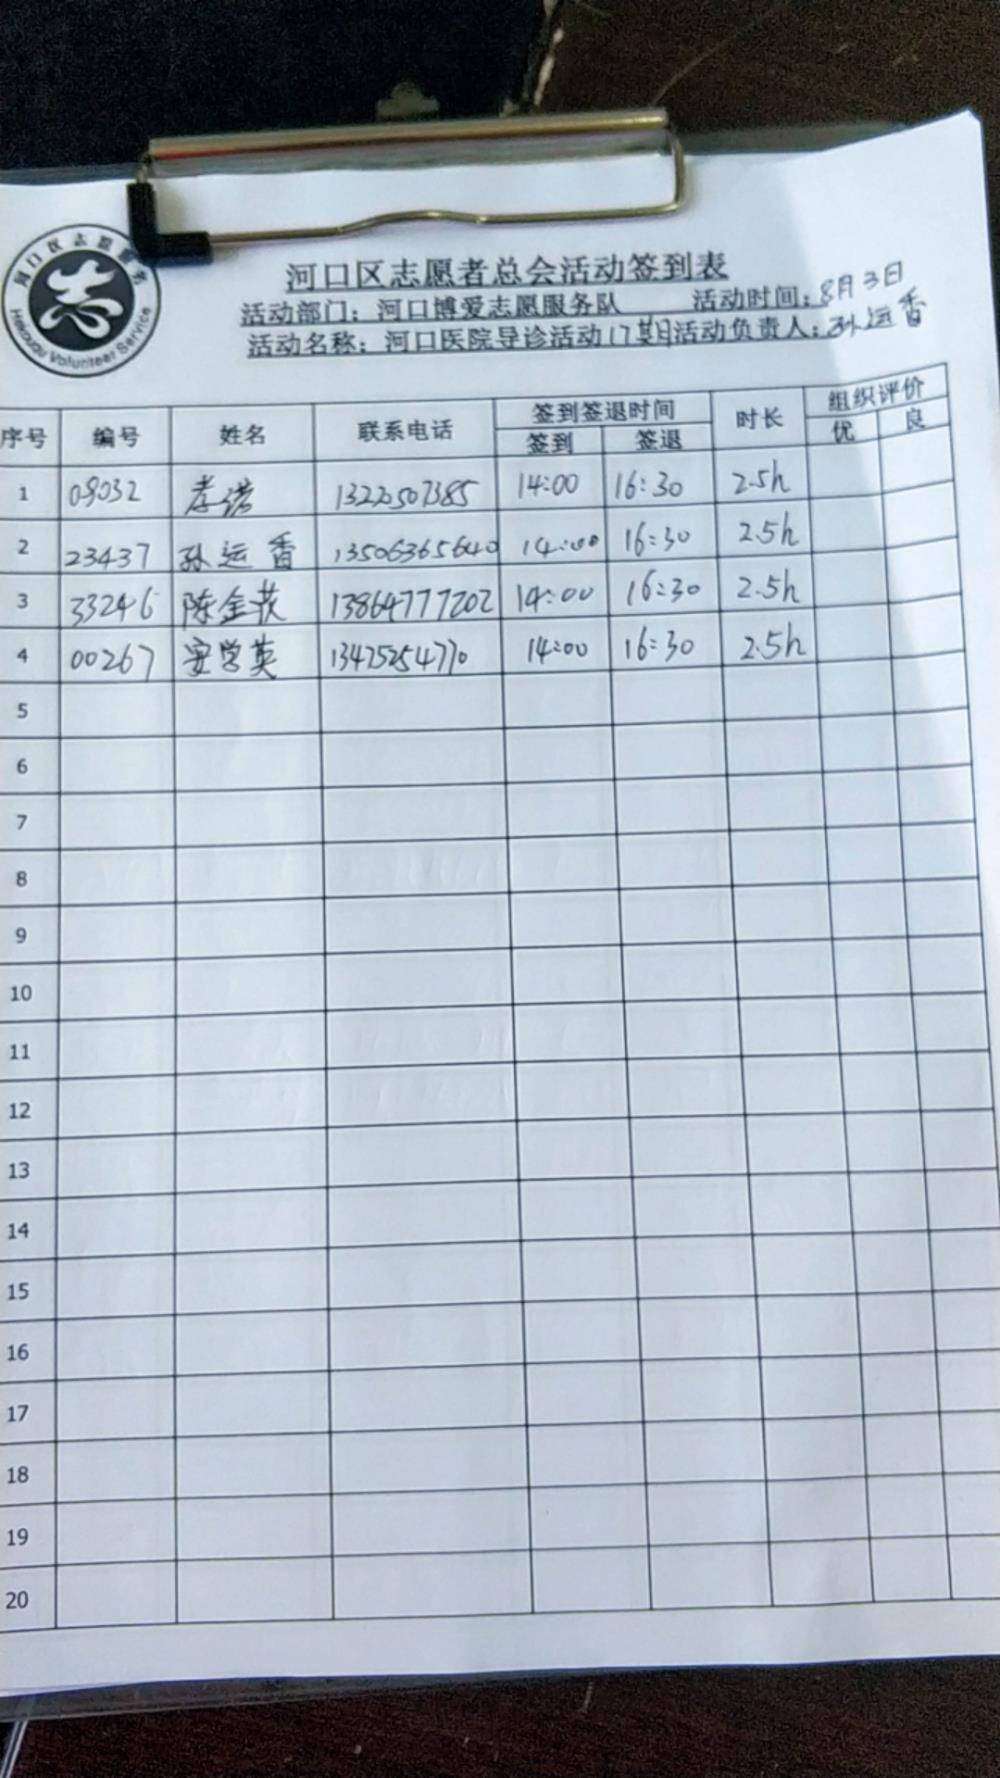 河口区志愿服务
Hekouqu Volunteer Service
河口区志愿者总会活动签到表
活动部门：河口博爱志愿服务队 活动时间：8月3日
活动名称：河口医院导诊活动17期 活动负责人：孙运香
序号 编号 姓名 联系电话 签到签退时间 时长 组织评价
签到 签退 优 良
1 09032 13220507385 14:00 16:30 2.5h
2 23437 孙运香 13506365640 14:00 16:30 2.5h
3 33246 陈金 13864777202 14:00 16:30 2.5h
4 00267 安学英 13475254770 14:00 16:30 2.5h
5
6
7
8
9
10
11
12
13
14
15
16
17
18
19
20